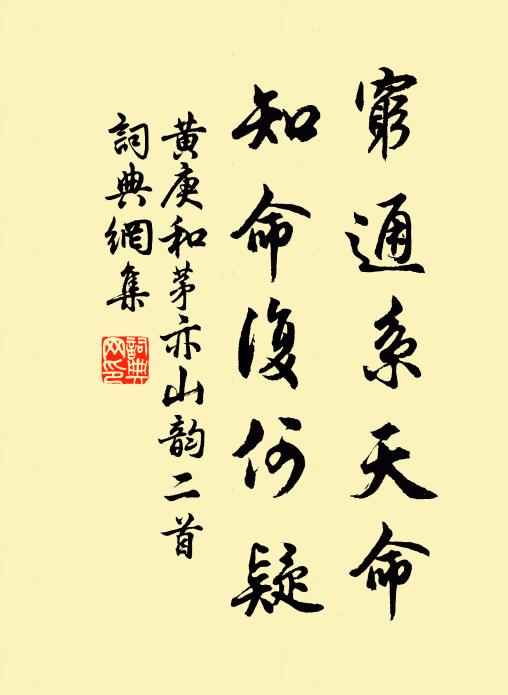 窮通系天命
知命復何疑
黄庚和茅亦山韵二首
詞典網集
詞典
网印